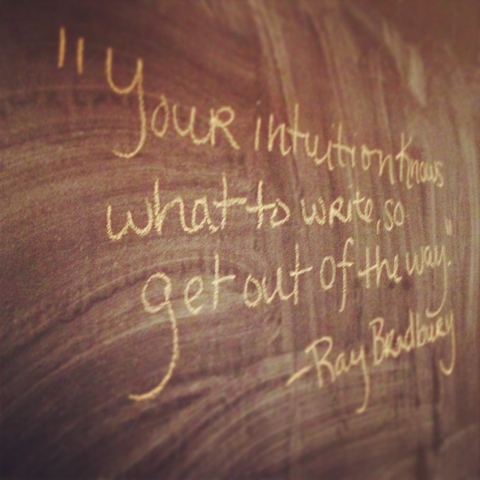 "Your intuition knows
what to write, so
get out of the way."
-Ray Bradbury